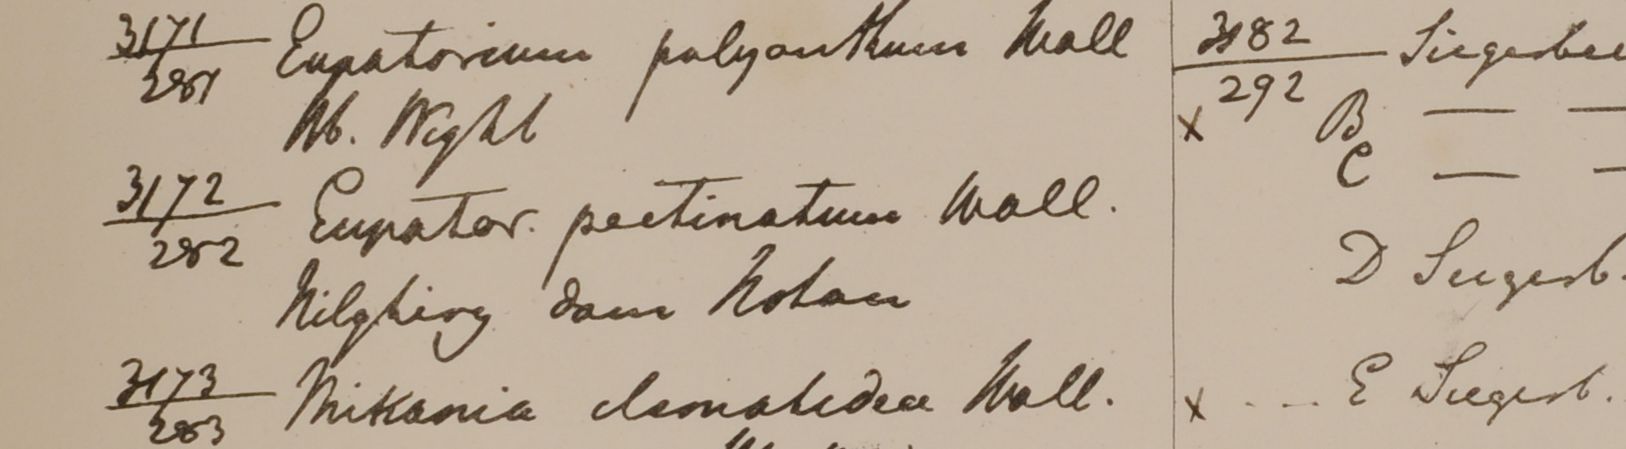 3171/281 Eupatorium polyanthum Wall
Hb. Wight
3172/282 Eupator. pectinatum Wall.
Nilghiry Dom Noton
3173/283 Mikania clematidea Wall.
3182/292 Siegesbec
x B — —
C — —
D Siegesb.
x .... E Siegesb.